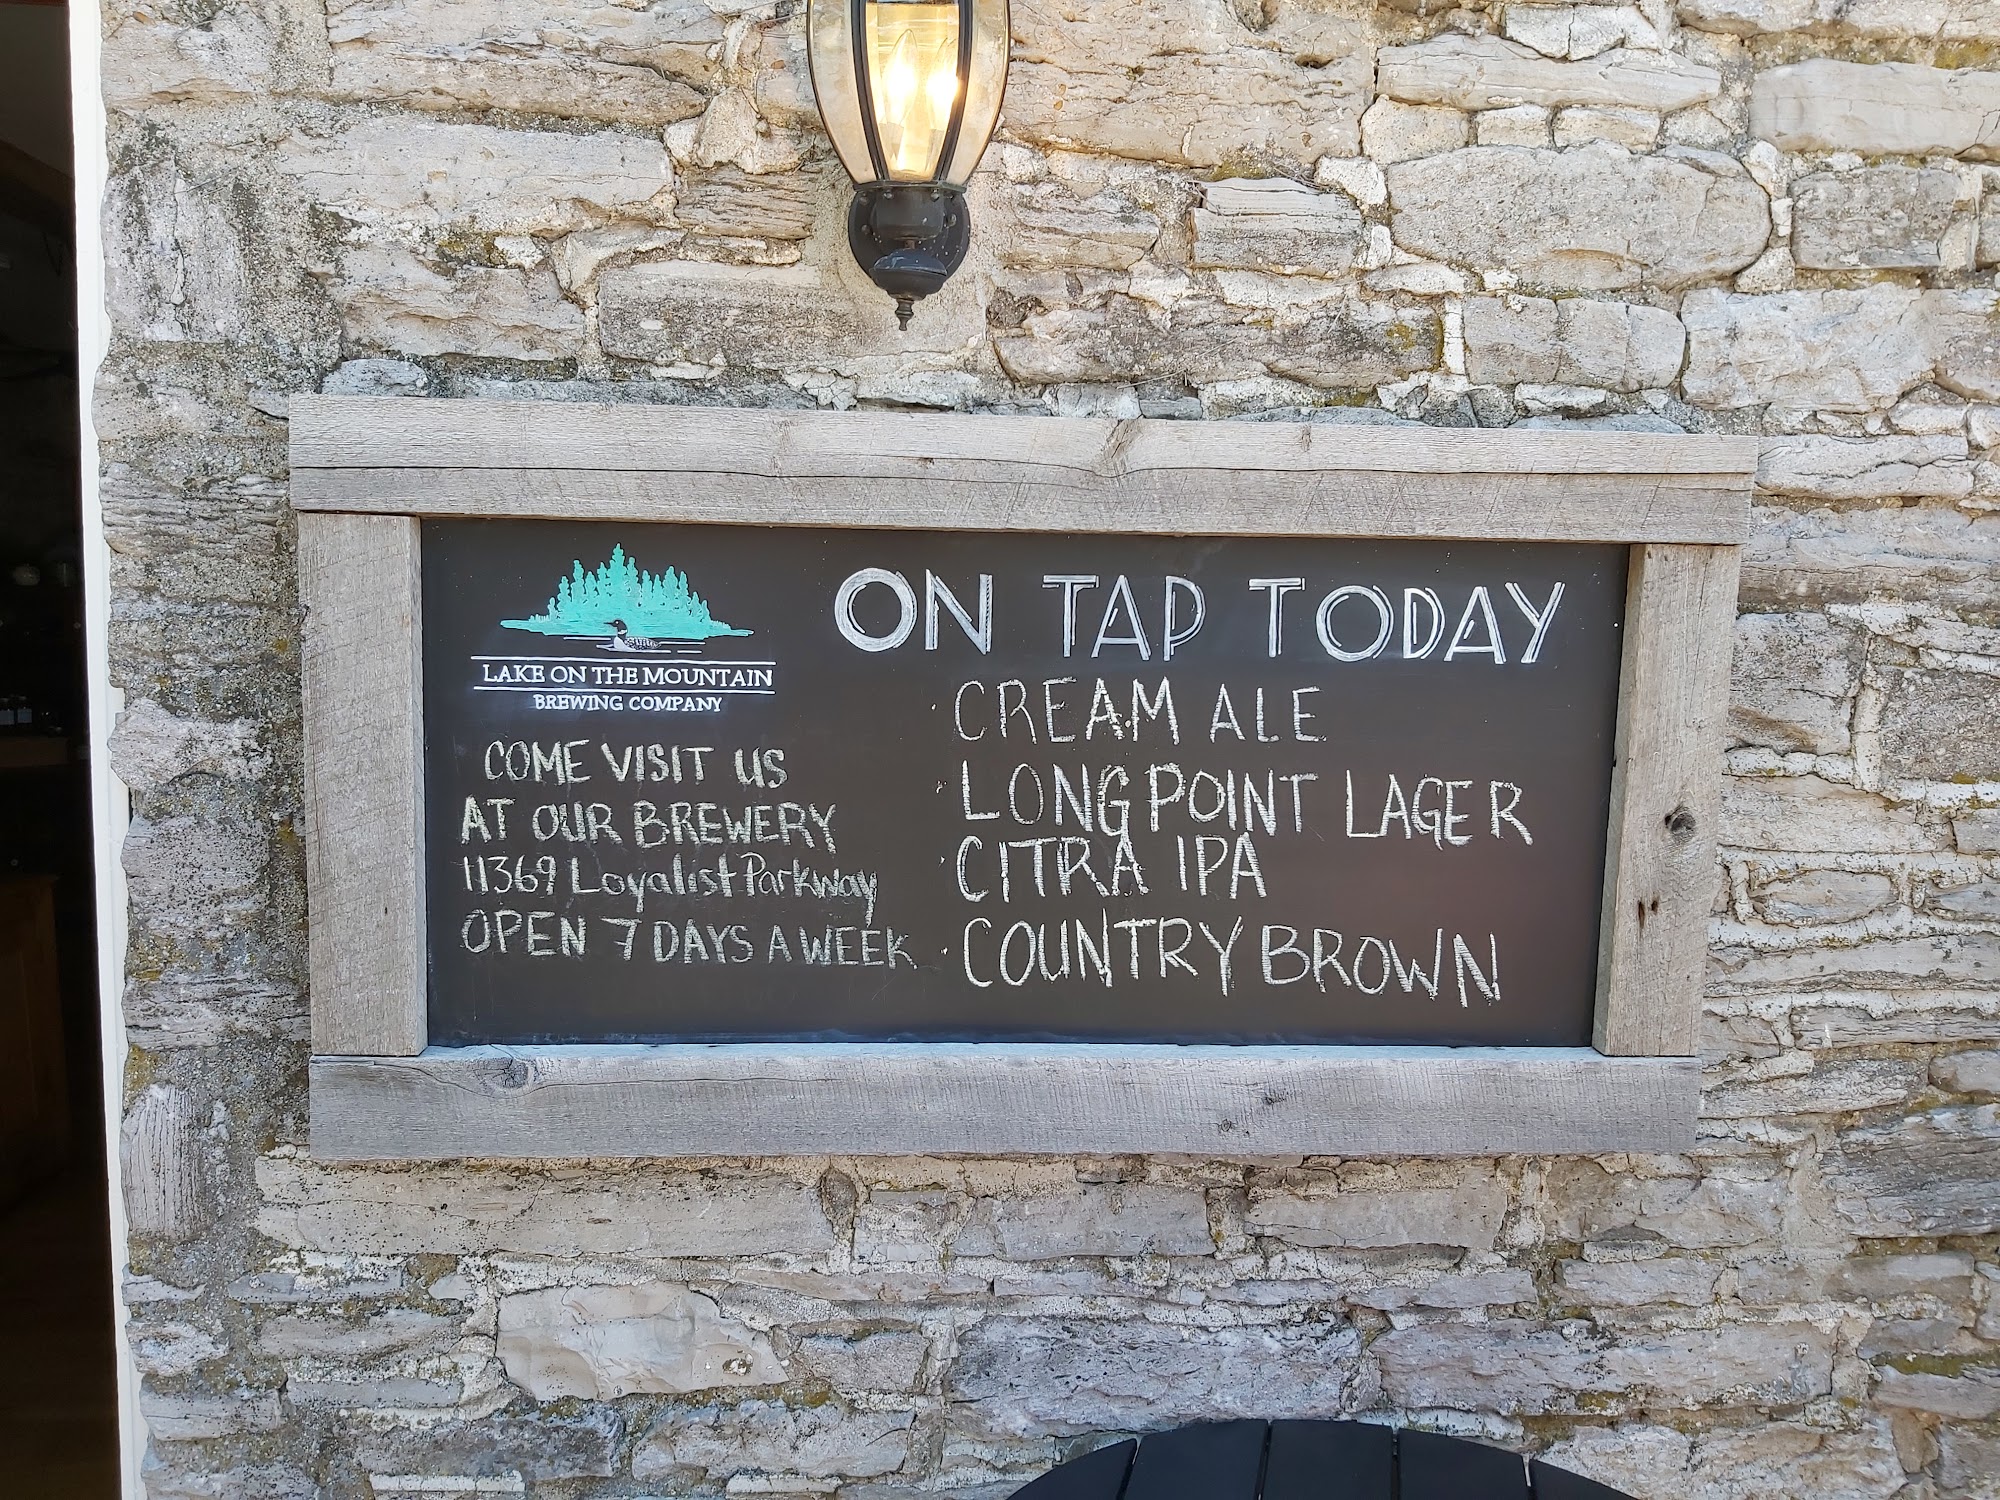 LAKE ON THE MOUNTAIN
BREWING COMPANY
COME VISIT US
AT OUR BREWERY
11369 Loyalist Parkway
OPEN 7 DAYS A WEEK
ON TAP TODAY
· CREAM ALE
· LONG POINT LAGER
· CITRA IPA
· COUNTRY BROWN